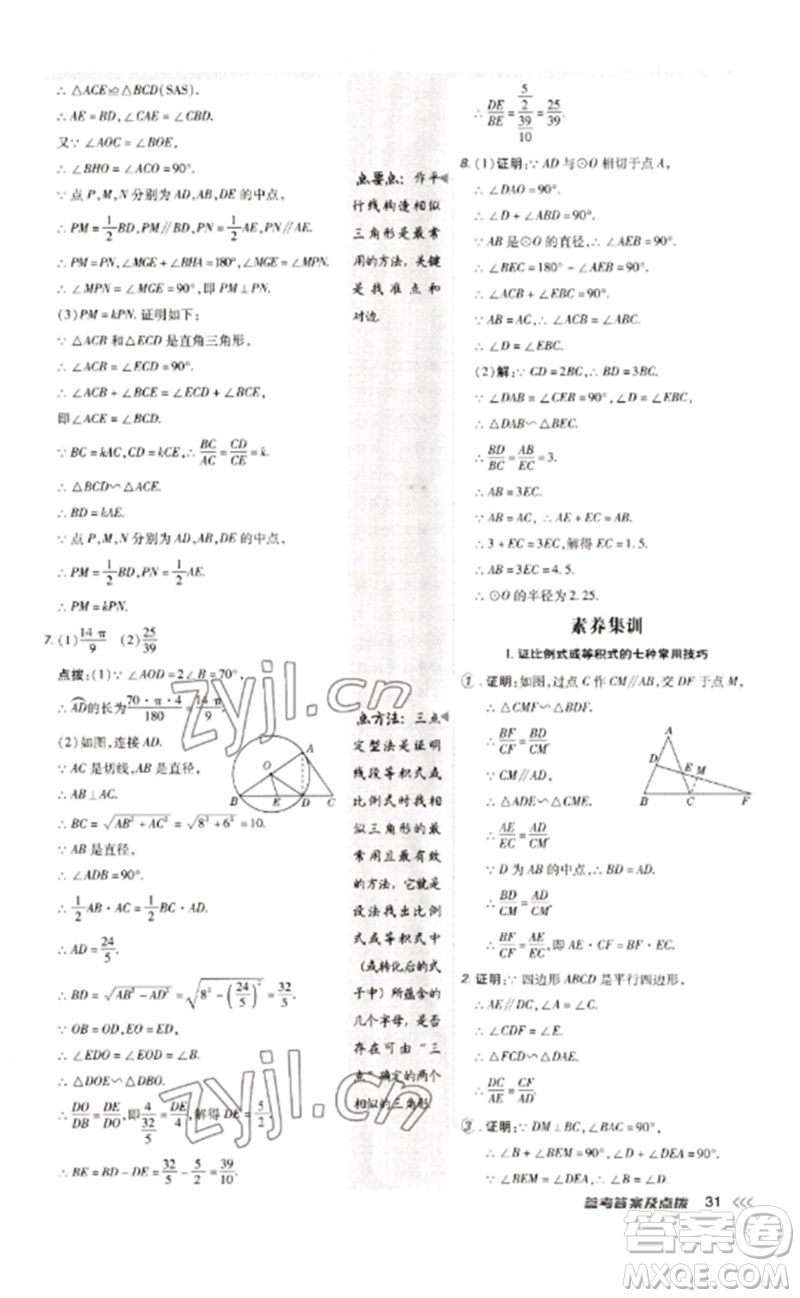 ∴ △ACE≌△BCD(SAS).
∴ AE = BD,∠CAE = ∠CBD.
又∵ ∠AOC = ∠BOE,
∴ ∠BHO = ∠ACO = 90°.
∵ 点 P,M,N 分别为 AD,AB,DE 的中点,
∴ PM = 1/2 BD,PM∥BD,PN = 1/2 AE,PN∥AE.
∴ PM = PN,∠MGE + ∠BHA = 180°,∠MGE = ∠MPN.
∴ ∠MPN = ∠MGE = 90°,即 PM⊥PN.
(3)PM = kPN. 证明如下:
∵ △ACB 和△ECD 是直角三角形,
∴ ∠ACB = ∠ECD = 90°.
∴ ∠ACB + ∠BCE = ∠ECD + ∠BCE,
即∠ACE = ∠BCD.
∵ BC = kAC,CD = kCE,∴ BC/AC = CD/CE = k.
∴ △BCD∽△ACE.
∴ BD = kAE.
∵ 点 P,M,N 分别为 AD,AB,DE 的中点,
∴ PM = 1/2 BD,PN = 1/2 AE.
∴ PM = kPN.
7. (1) 14π/9 (2) 25/39
点拨:(1)∵ ∠AOD = 2∠B = 70°,
∴ AD的长为 70·π·4/180 = 14π/9.
(2)如图,连接 AD.
∵ AC 是切线,AB 是直径,
∴ AB⊥AC.
∴ BC = √(AB² + AC²) = √(8² + 6²) = 10.
∵ AB 是直径,
∴ ∠ADB = 90°.
∴ 1/2 AB · AC = 1/2 BC · AD.
∴ AD = 24/5.
∴ BD = √(AB² − AD²) = √(8² − (24/5)²) = 32/5.
∵ OB = OD,EO = ED,
∴ ∠EDO = ∠EOD = ∠OBD.
∴ △DOE∽△DBO.
∴ DO/DB = DE/DO,即 4/(32/5) = DE/4,解得 DE = 5/2.
∴ BE = BD − DE = 32/5 − 5/2 = 39/10.
A
O
B
E
D
C
点要点:作平
行线构造相似
三角形是最常
用的方法,关键
是找准点和
对边.
点方法:三点
定型法是证明
线段等积式或
比例式时找相
似三角形的最
常用且最有效
的方法,它就是
设法找出比例
式或等积式中
(或转化后的式
子中)所蕴含的
几个字母,是否
存在可由“三
点”确定的两个
相似的三角形.
∴ DE/BE = (5/2)/(39/10) = 25/39.
8. (1)证明:∵ AD 与⊙O 相切于点 A,
∴ ∠DAO = 90°.
∴ ∠D + ∠ABD = 90°.
∵ AB 是⊙O 的直径,∴ ∠AEB = 90°.
∴ ∠BEC = 180° − ∠AEB = 90°.
∴ ∠ACB + ∠EBC = 90°.
∵ AB = AC,∴ ∠ACB = ∠ABC.
∴ ∠D = ∠EBC.
(2)解:∵ CD = 2BC,∴ BD = 3BC.
∵ ∠DAB = ∠CEB = 90°,∠D = ∠EBC,
∴ △DAB∽△BEC.
∴ BD/BC = AB/EC = 3.
∴ AB = 3EC.
∵ AB = AC,∴ AE + EC = AB.
∴ 3 + EC = 3EC,解得 EC = 1.5.
∴ AB = 3EC = 4.5.
∴ ⊙O 的半径为 2.25.
素养集训
1. 证比例式或等积式的七种常用技巧
1. 证明:如图,过点 C 作 CM∥AB,交 DF 于点 M,
∴ △CMF∽△BDF.
∴ BF/CF = BD/CM.
∵ CM∥AD,
∴ △ADE∽△CME.
∴ AE/EC = AD/CM.
∵ D 为 AB 的中点,∴ BD = AD.
∴ BD/CM = AD/CM.
∴ BF/CF = AE/EC,即 AE · CF = BF · EC.
A
D
E
M
B
C
F
2. 证明:∵ 四边形 ABCD 是平行四边形,
∴ AE∥DC,∠A = ∠C.
∴ ∠CDF = ∠E.
∴ △FCD∽△DAE.
∴ DC/AE = CF/AD.
3. 证明:∵ DM⊥BC,∠BAC = 90°,
∴ ∠B + ∠BEM = 90°,∠D + ∠DEA = 90°.
∵ ∠BEM = ∠DEA,
参考答案及点拨 31
zyjl.cn
zyjl.cn
答案圈
MXQE.COM